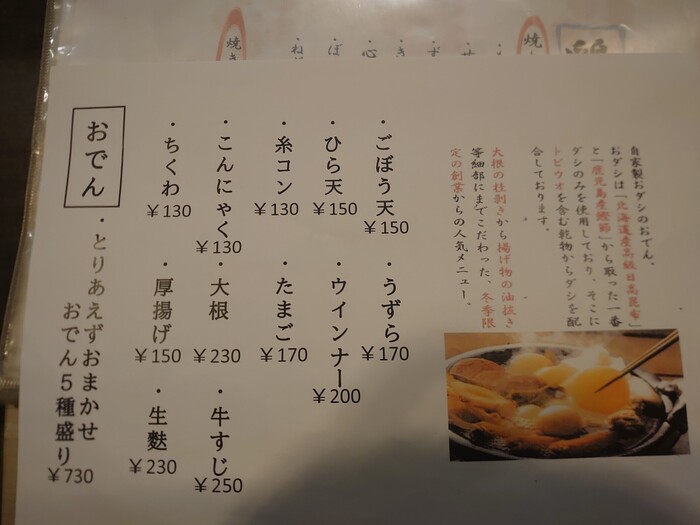 自家製おダシのおでん。
おダシは「北海道産高級日高昆布」
と「鹿児島産鰹節」から取った一番
ダシのみを使用しており、そこに
トビウオを含む乾物からダシを配
合しております。
大根の桂剥きから揚げ物の油抜き
等細部にまでこだわった、冬季限
定の創業からの人気メニュー。
・ごぼう天 ¥150
・うずら ¥170
・ひら天 ¥150
・ウインナー ¥200
・糸コン ¥130
・たまご ¥170
・こんにゃく ¥130
・大根 ¥230
・牛すじ ¥250
・ちくわ ¥130
・厚揚げ ¥150
・生麩 ¥230
おでん
・とりあえずおまかせ
おでん5種盛り ¥730